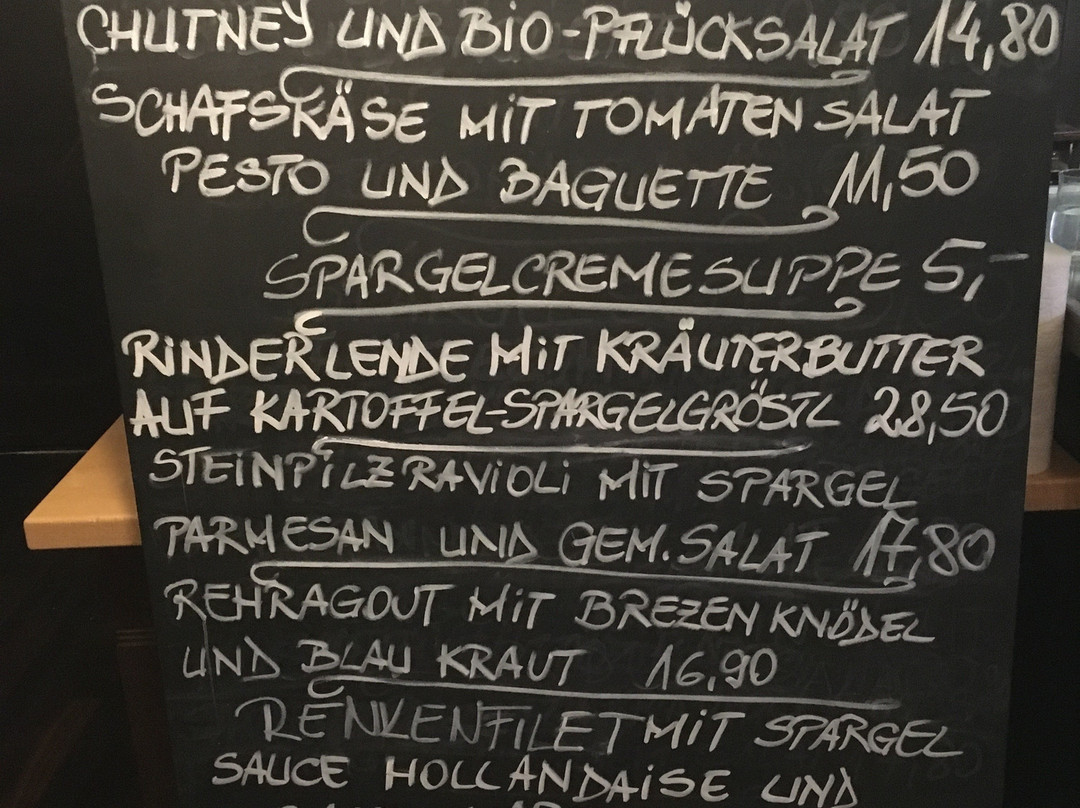 CHUTNEY UND BIO-PFLÜCKSALAT 14,80
SCHAFSKÄSE MIT TOMATEN SALAT
PESTO UND BAGUETTE 11,50
SPARGELCREMESUPPE 5,-
RINDERLENDE MIT KRÄUTERBUTTER
AUF KARTOFFEL-SPARGELGRÖSTL 28,50
STEINPILZRAVIOLI MIT SPARGEL
PARMESAN UND GEM. SALAT 17,80
REHRAGOUT MIT BREZENKNÖDEL
UND BLAU KRAUT 16,90
RENKENFILET MIT SPARGEL
SAUCE HOLLANDAISE UND